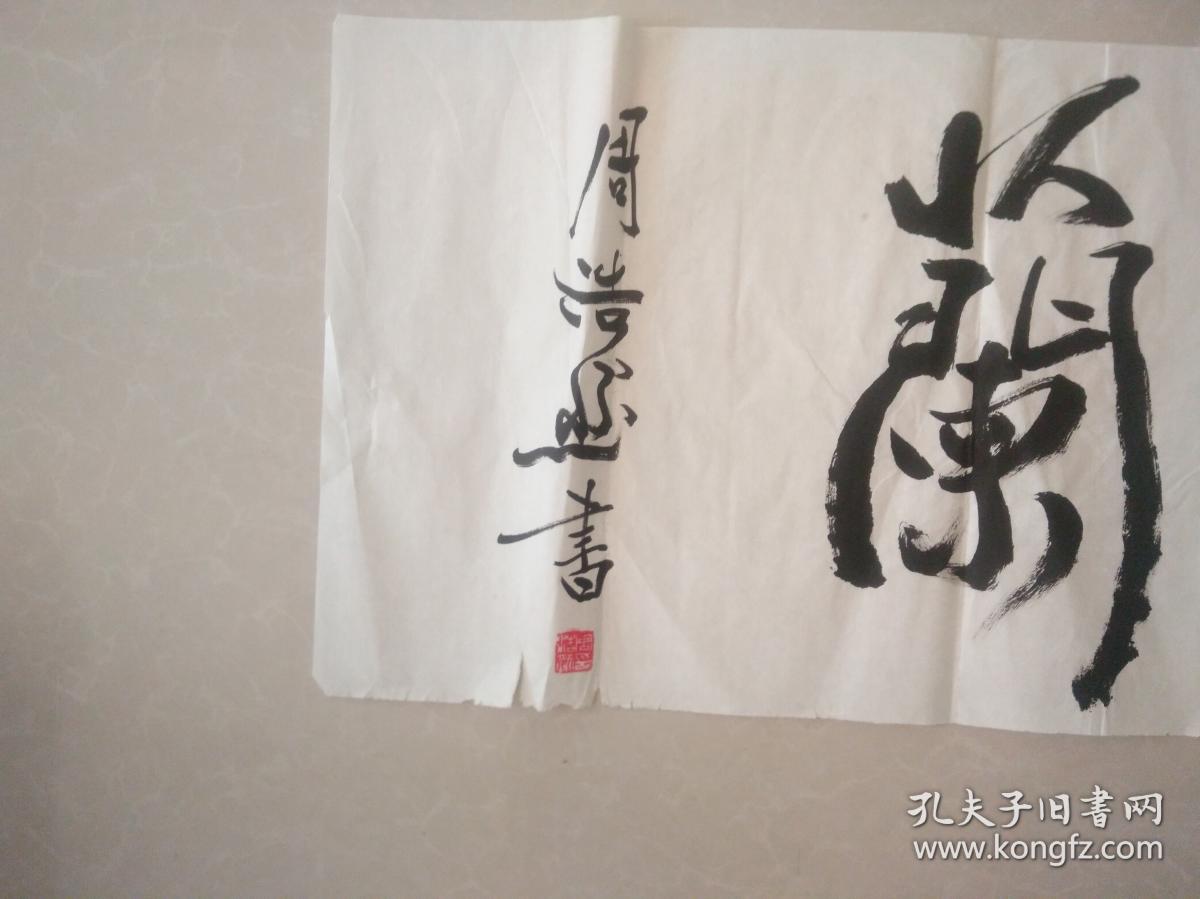 蘭
周浩然書
孔夫子旧書网
www.kongfz.com